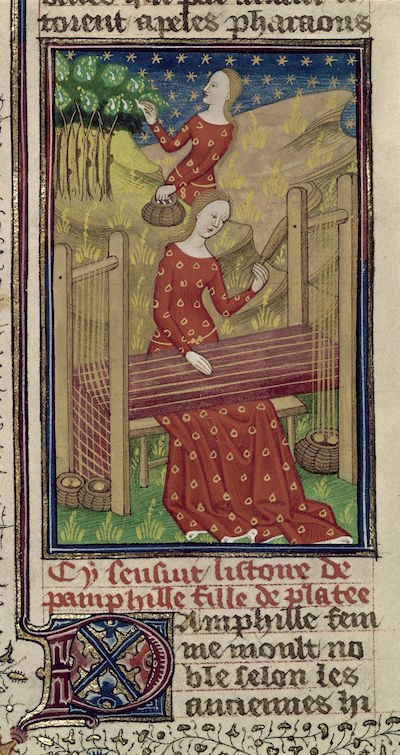 torent apeles pharaons
Cy sensuit listoire de
pamphille fille de platee
Pamphille fem
me moult no
ble selon les
anciennes hi